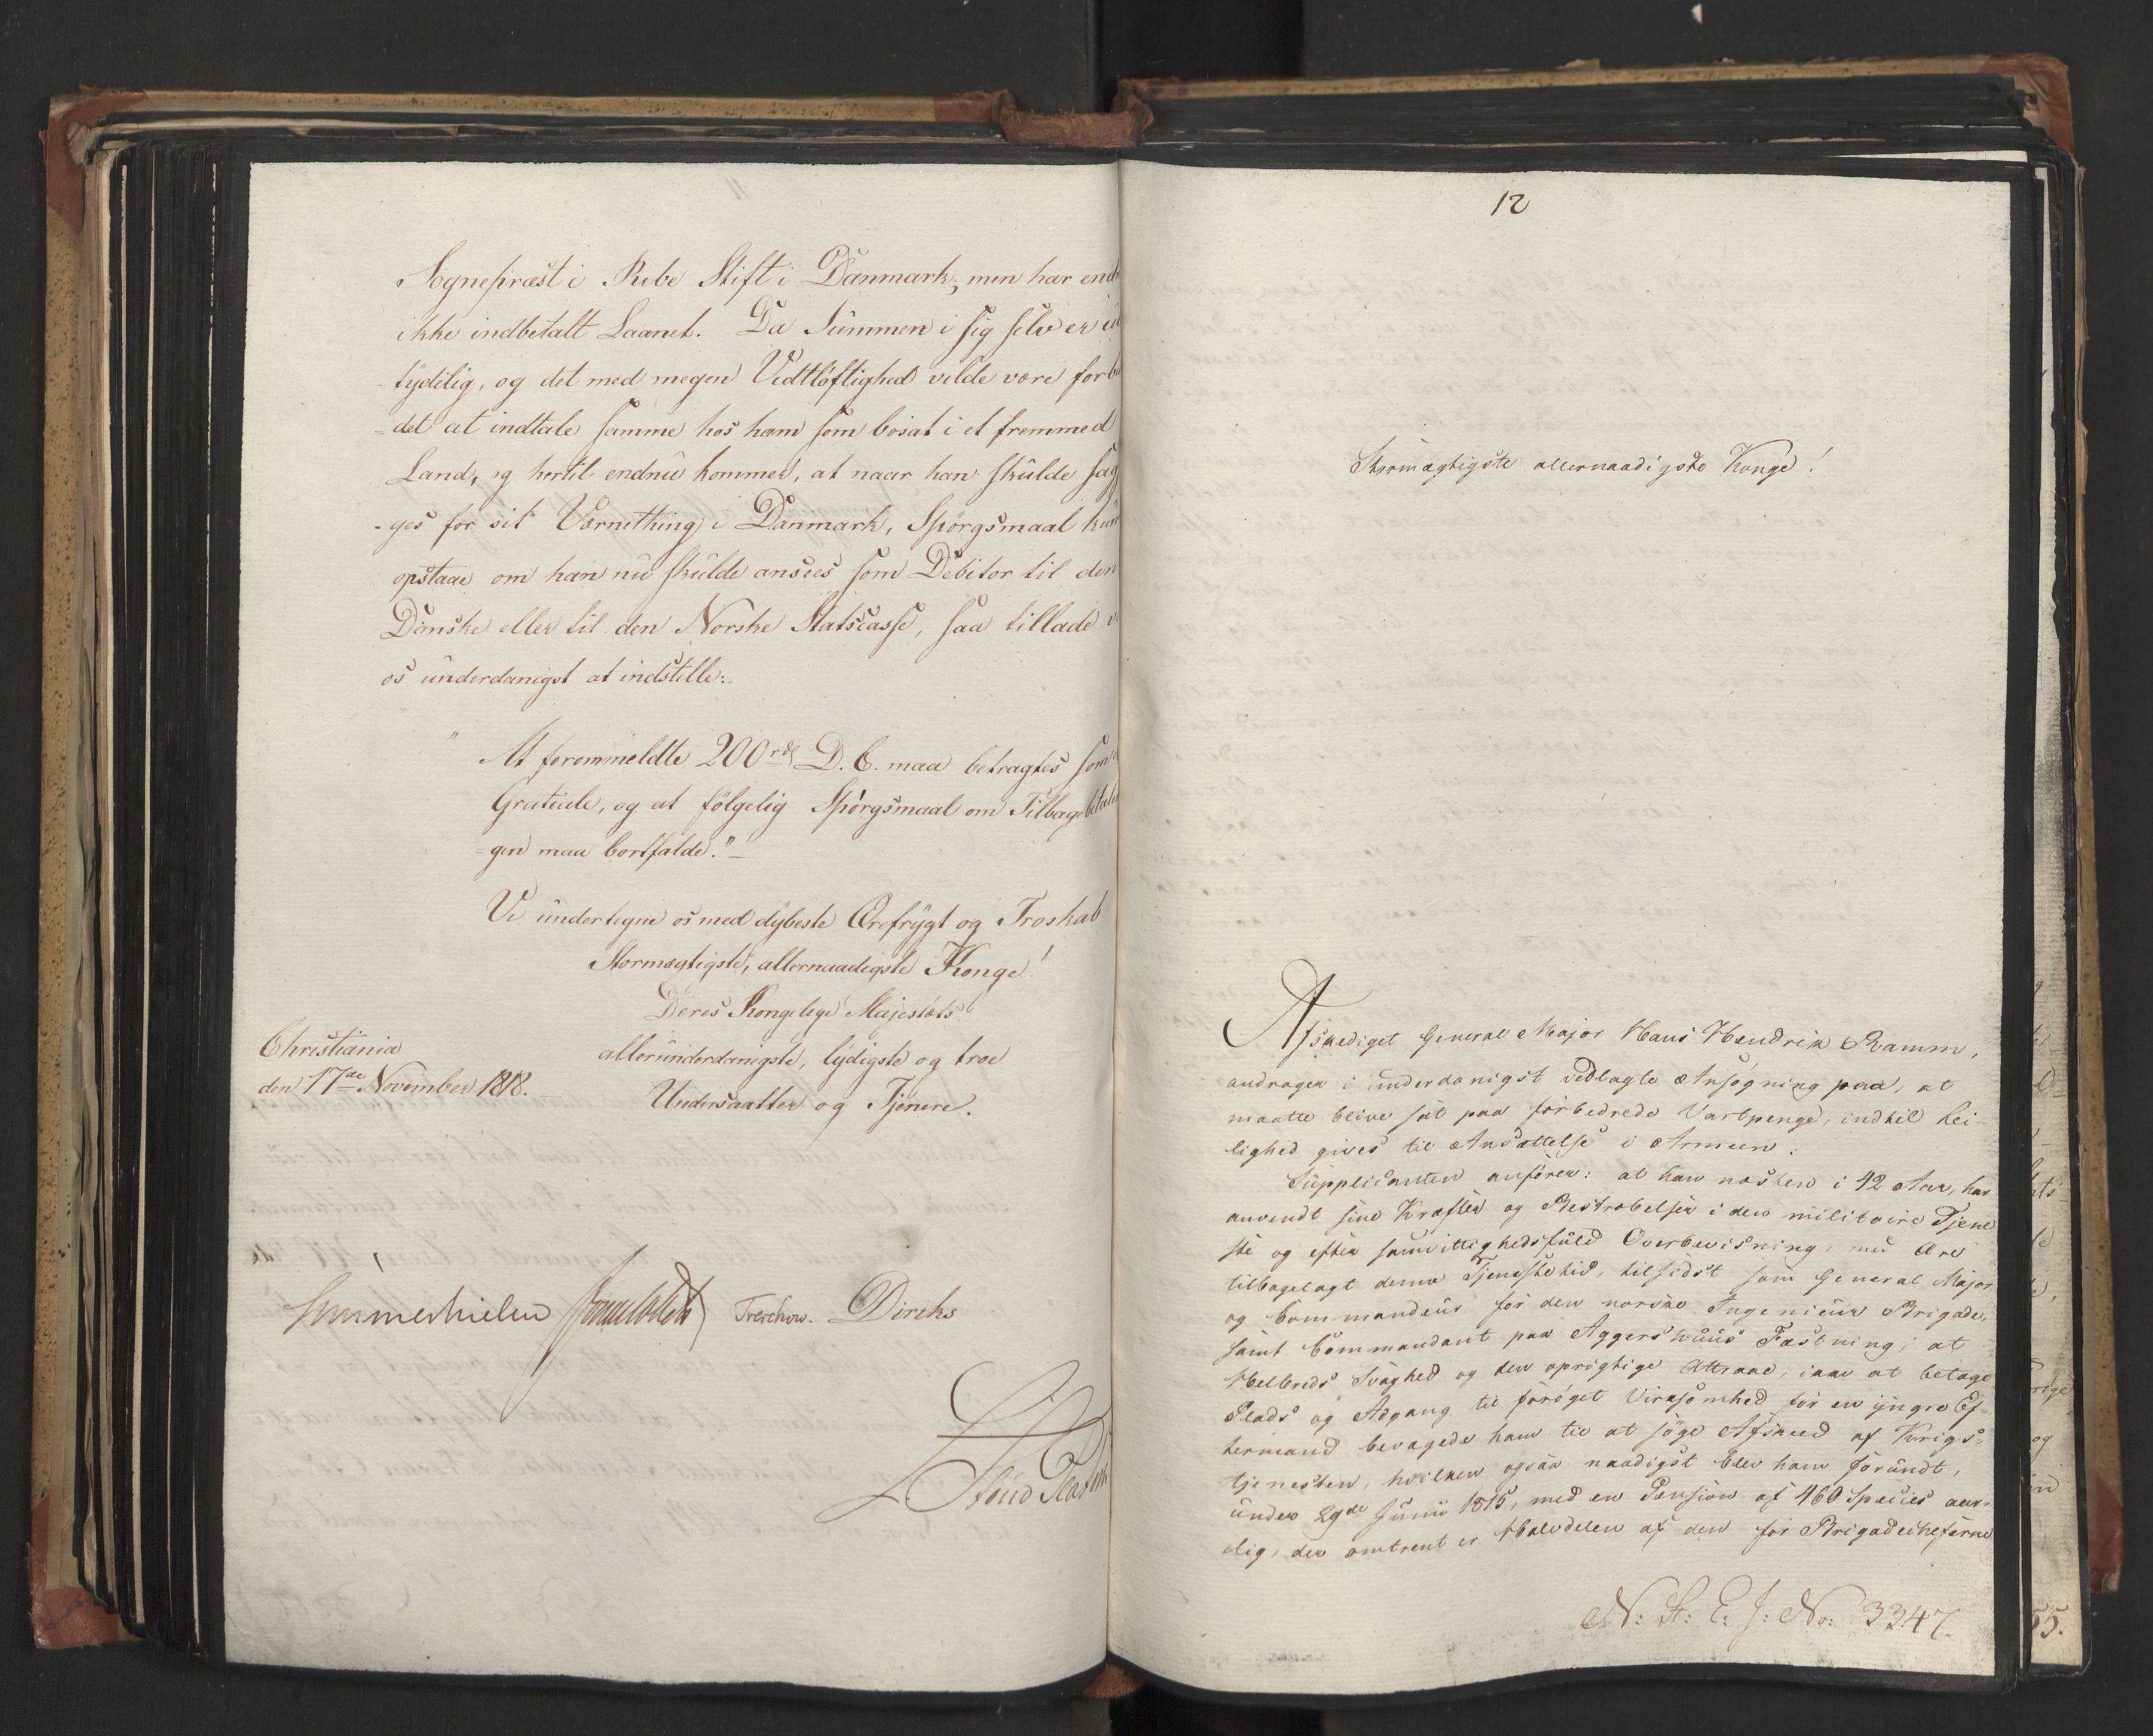 Sognepræst i Ribe Stift i Danmark, men har end
ikke indbetalt Laanet. Da Summen i sig selv er
tydelig, og det med megen Vidtløftighed vilde være forb
-det at indtale samme hos ham som bosat i et fremmed
Land, og hertil endnu kommer, at naar han skulde sag
-ges for sit Værnething i Danmark, Spørgsmaal kun
opstaae om han nu skulde ansees som Debitor til den
Danske eller til den Norske Statscasse, saa tillade v
os underdanigst at indstille:
" At forommeldte 200 rd D. C. maa betragtes som
Gratiale, og at følgelig Spørgsmaal om Tilbagebetalin
=gen maa bortfalde."—
Vi undertegne os med dybeste Ærefrygt og Troskab
Stormægtigste, allernaadigste Konge!
Deres Kongelige Majestæts
allerunderdanigste, lydigste og troe
Undersaatter og Tjenere.
Christiania
den 17de November 1818.
Sommerhielm Treschow. Diriks
12
Stormægtigste allernaadigste Konge!
Afskediget General Major Hans Hendrik Ramm,
andrager i underdanigst vedlagte Ansøgning paa, at
maatte blive sat paa forbedrede Vartpenge, indtil Lei-
lighed gives til Ansættelse i Armeen.
Supplicanten anfører: at han næsten i 42 Aar, har
anvendt sine Kræfter og Bestræbelser i den militaire Tjene
ste og efter samvittighedsfuld Overbeviisning, med Ære
tilbagelagt denne Tjenestetid, tilsidst som General Major
og Commandeur for den norske Ingenieur Brigade,
samt Commandant paa Aggershuus Fæstning; at
Helbreds Svaghed og den oprigtige Attraae, ikke at betage
Plads og Adgang til forøget Virksomhed for en yngre Ef-
termand bevægede ham til at søge Afskeed af Krigs-
tjenesten, hvilken ogsaa naadigst blev ham forundt,
under 29de Junii 1815, med en Pension af 460 Species aar-
lig, der omtrent er Halvdelen af den for Brigadecheferne
N: St: E: J: No: 3347.
55.